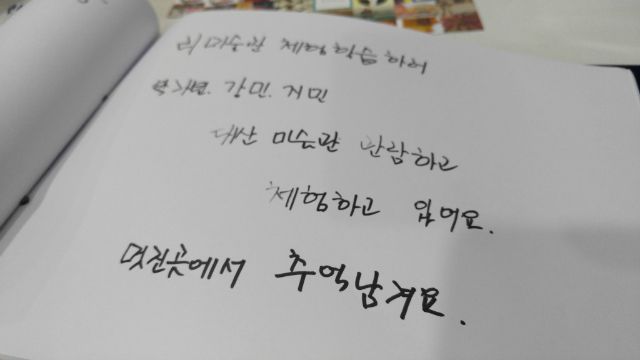 리 미술관 체험학습하러
강민. 거민
미슨관 관람하고
체험하고 있어요.
멋진곳에서 추억남겨요.